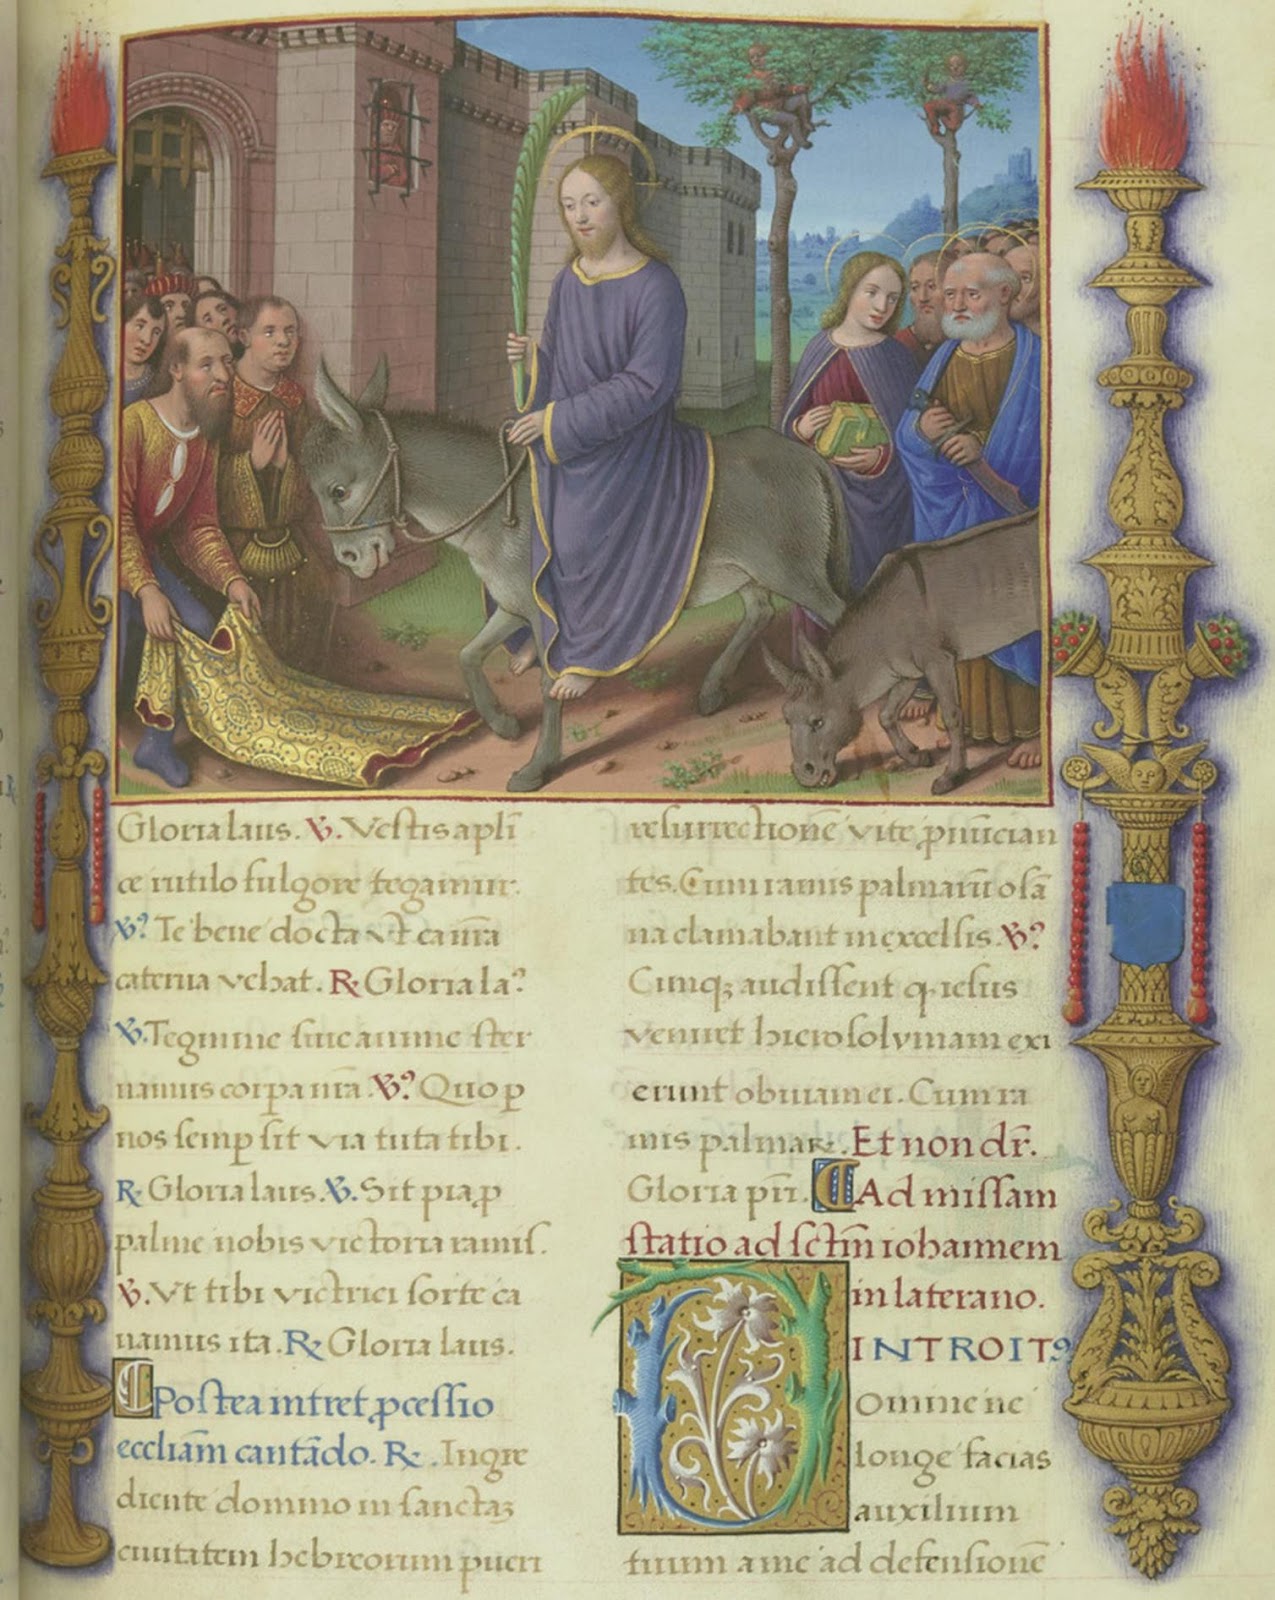 Gloria laus. ℣. Vestis apli
ce rutilo fulgore tegamur.
℣? Te bene docta ut ea n̄ra
caterua vehat. ℟ Gloria la?
℣. Tegmine siue anime ster
namus corpa n̄ra ℣? Quo ꝑ
nos semꝑ sit via tuta tibi.
℟. Gloria laus. ℣. Sit pia ꝑ
palme nobis victoria ramis.
℣. Ut tibi victrici sorte ca
namus ita. ℟ Gloria laus.
Postea intret ꝓcessio
eccliam̄ cantādo. ℟. Ingre
diente domino in sanctaꝫ
ciuitatem hebreorum pueri
resurrectionē vite ꝓnūcian
tes. Cum ramis palmarū osā
na clamabant in excelsis. ℣?
Cumqꝫ audissent ꝙ iesus
veniret hierosolymam exi
erunt obuiam ei. Cum ra
mis palmaꝝ. Et non dr̄.
Gloria pr̄i. Ad missam
statio ad sctm̄ iohannem
in laterano.
INTROITꝰ
Domine ne
longe facias
auxilium
tuum a me ad defensionē